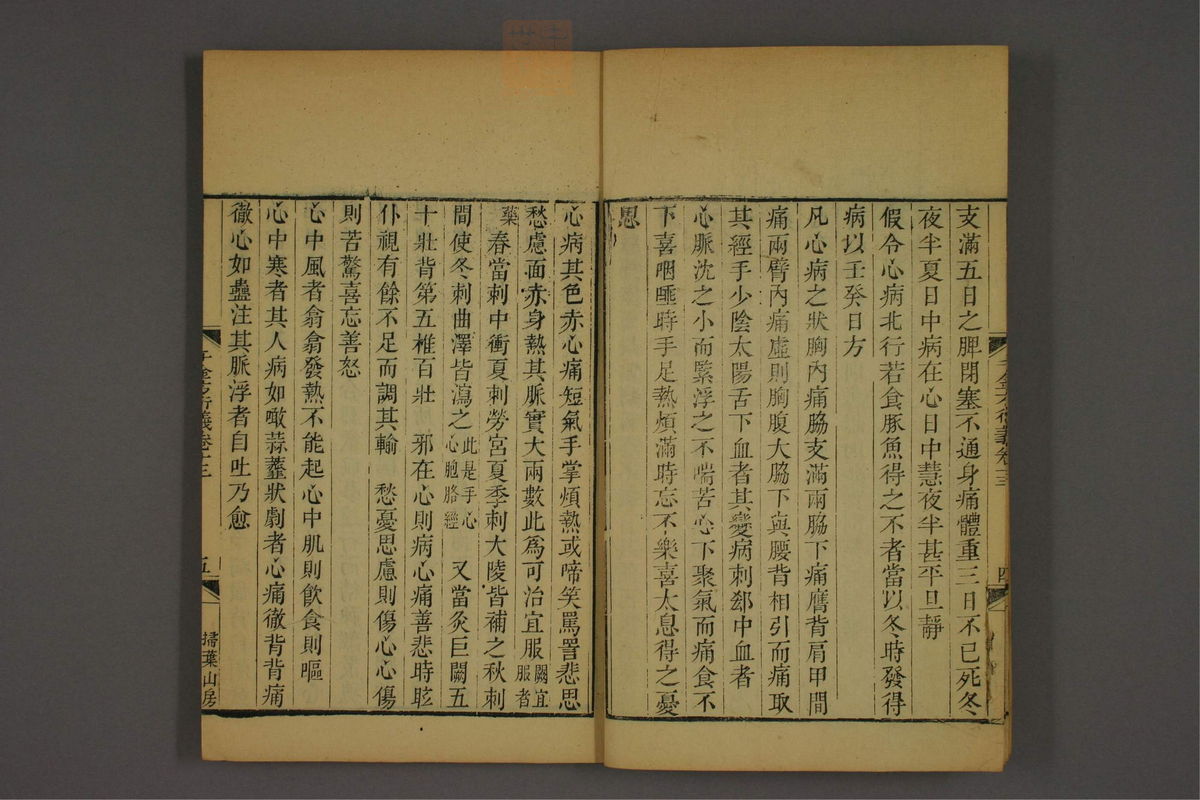 支滿五日之脾閉塞不通身痛體重三日不已死冬
夜半夏日中病在心日中慧夜半甚平旦靜
假令心病北行若食豚魚得之不者當以冬時發得
病以壬癸日方
凡心病之狀胸內痛脇支滿兩脇下痛膺背肩甲間
痛兩臂內痛虛則胸腹大脇下與腰背相引而痛取
其經手少陰太陽舌下血者其變病刺郄中血者
心脈沈之小而緊浮之不喘苦心下聚氣而痛食不
下喜咽唾時手足熱煩滿時忘不樂喜太息得之憂
思
心病其色赤心痛短氣手掌煩熱或啼笑罵詈悲思
愁慮面赤身熱其脈實大而數此爲可治宜服闕宜服者
藥 春當刺中衝夏刺勞宮夏季刺大陵皆補之秋刺
間使冬刺曲澤皆瀉之此是手心心胞胳經 又當灸巨闕五
十壯背第五椎百壯 邪在心則病心痛善悲時眩
仆視有餘不足而調其輸 愁憂思慮則傷心心傷
則苦驚喜忘善怒
心中風者翕翕發熱不能起心中肌則飲食則嘔
心中寒者其人病如噉蒜虀狀劇者心痛徹背背痛
徹心如蠱注其脈浮者自吐乃愈
千金方衍義卷十三
五
掃葉山房
四